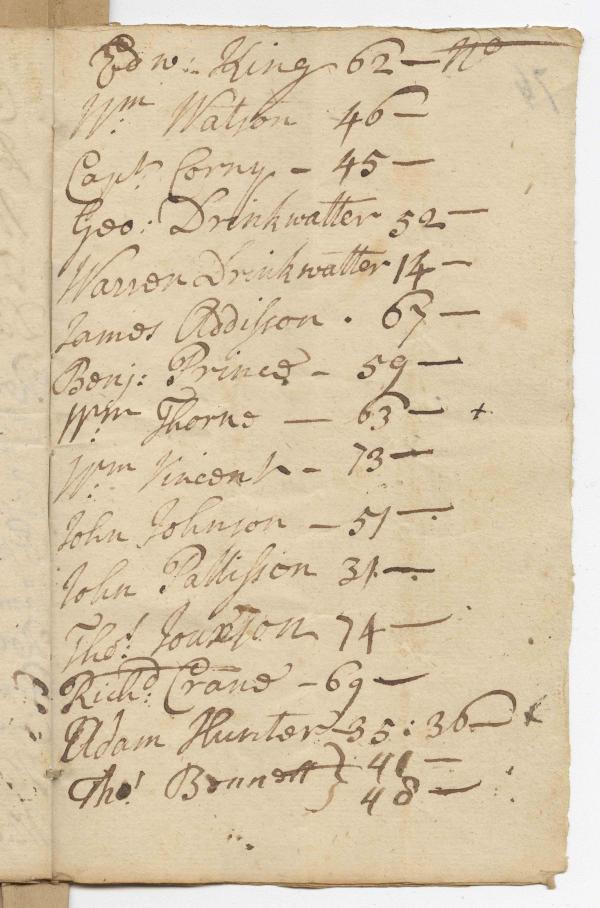 Edw: King 62 — No
Wm Watson 46 —
Capt. Corny — 45 —
Geo: Drinkwatter 52 —
Warren Drinkwatter 14 —
James Addisson . 67 —
Benj: Prince — 59 —
Wm Thorne — 63 — +
Wm Vincent — 73 —
John Johnson — 51 —
John Pattisson 31 —
Thos. 74 —
Richd: Crane — 69 —
Adam Hunter — 35 : 36 — +
Thos Bennett } 41 —
48 —